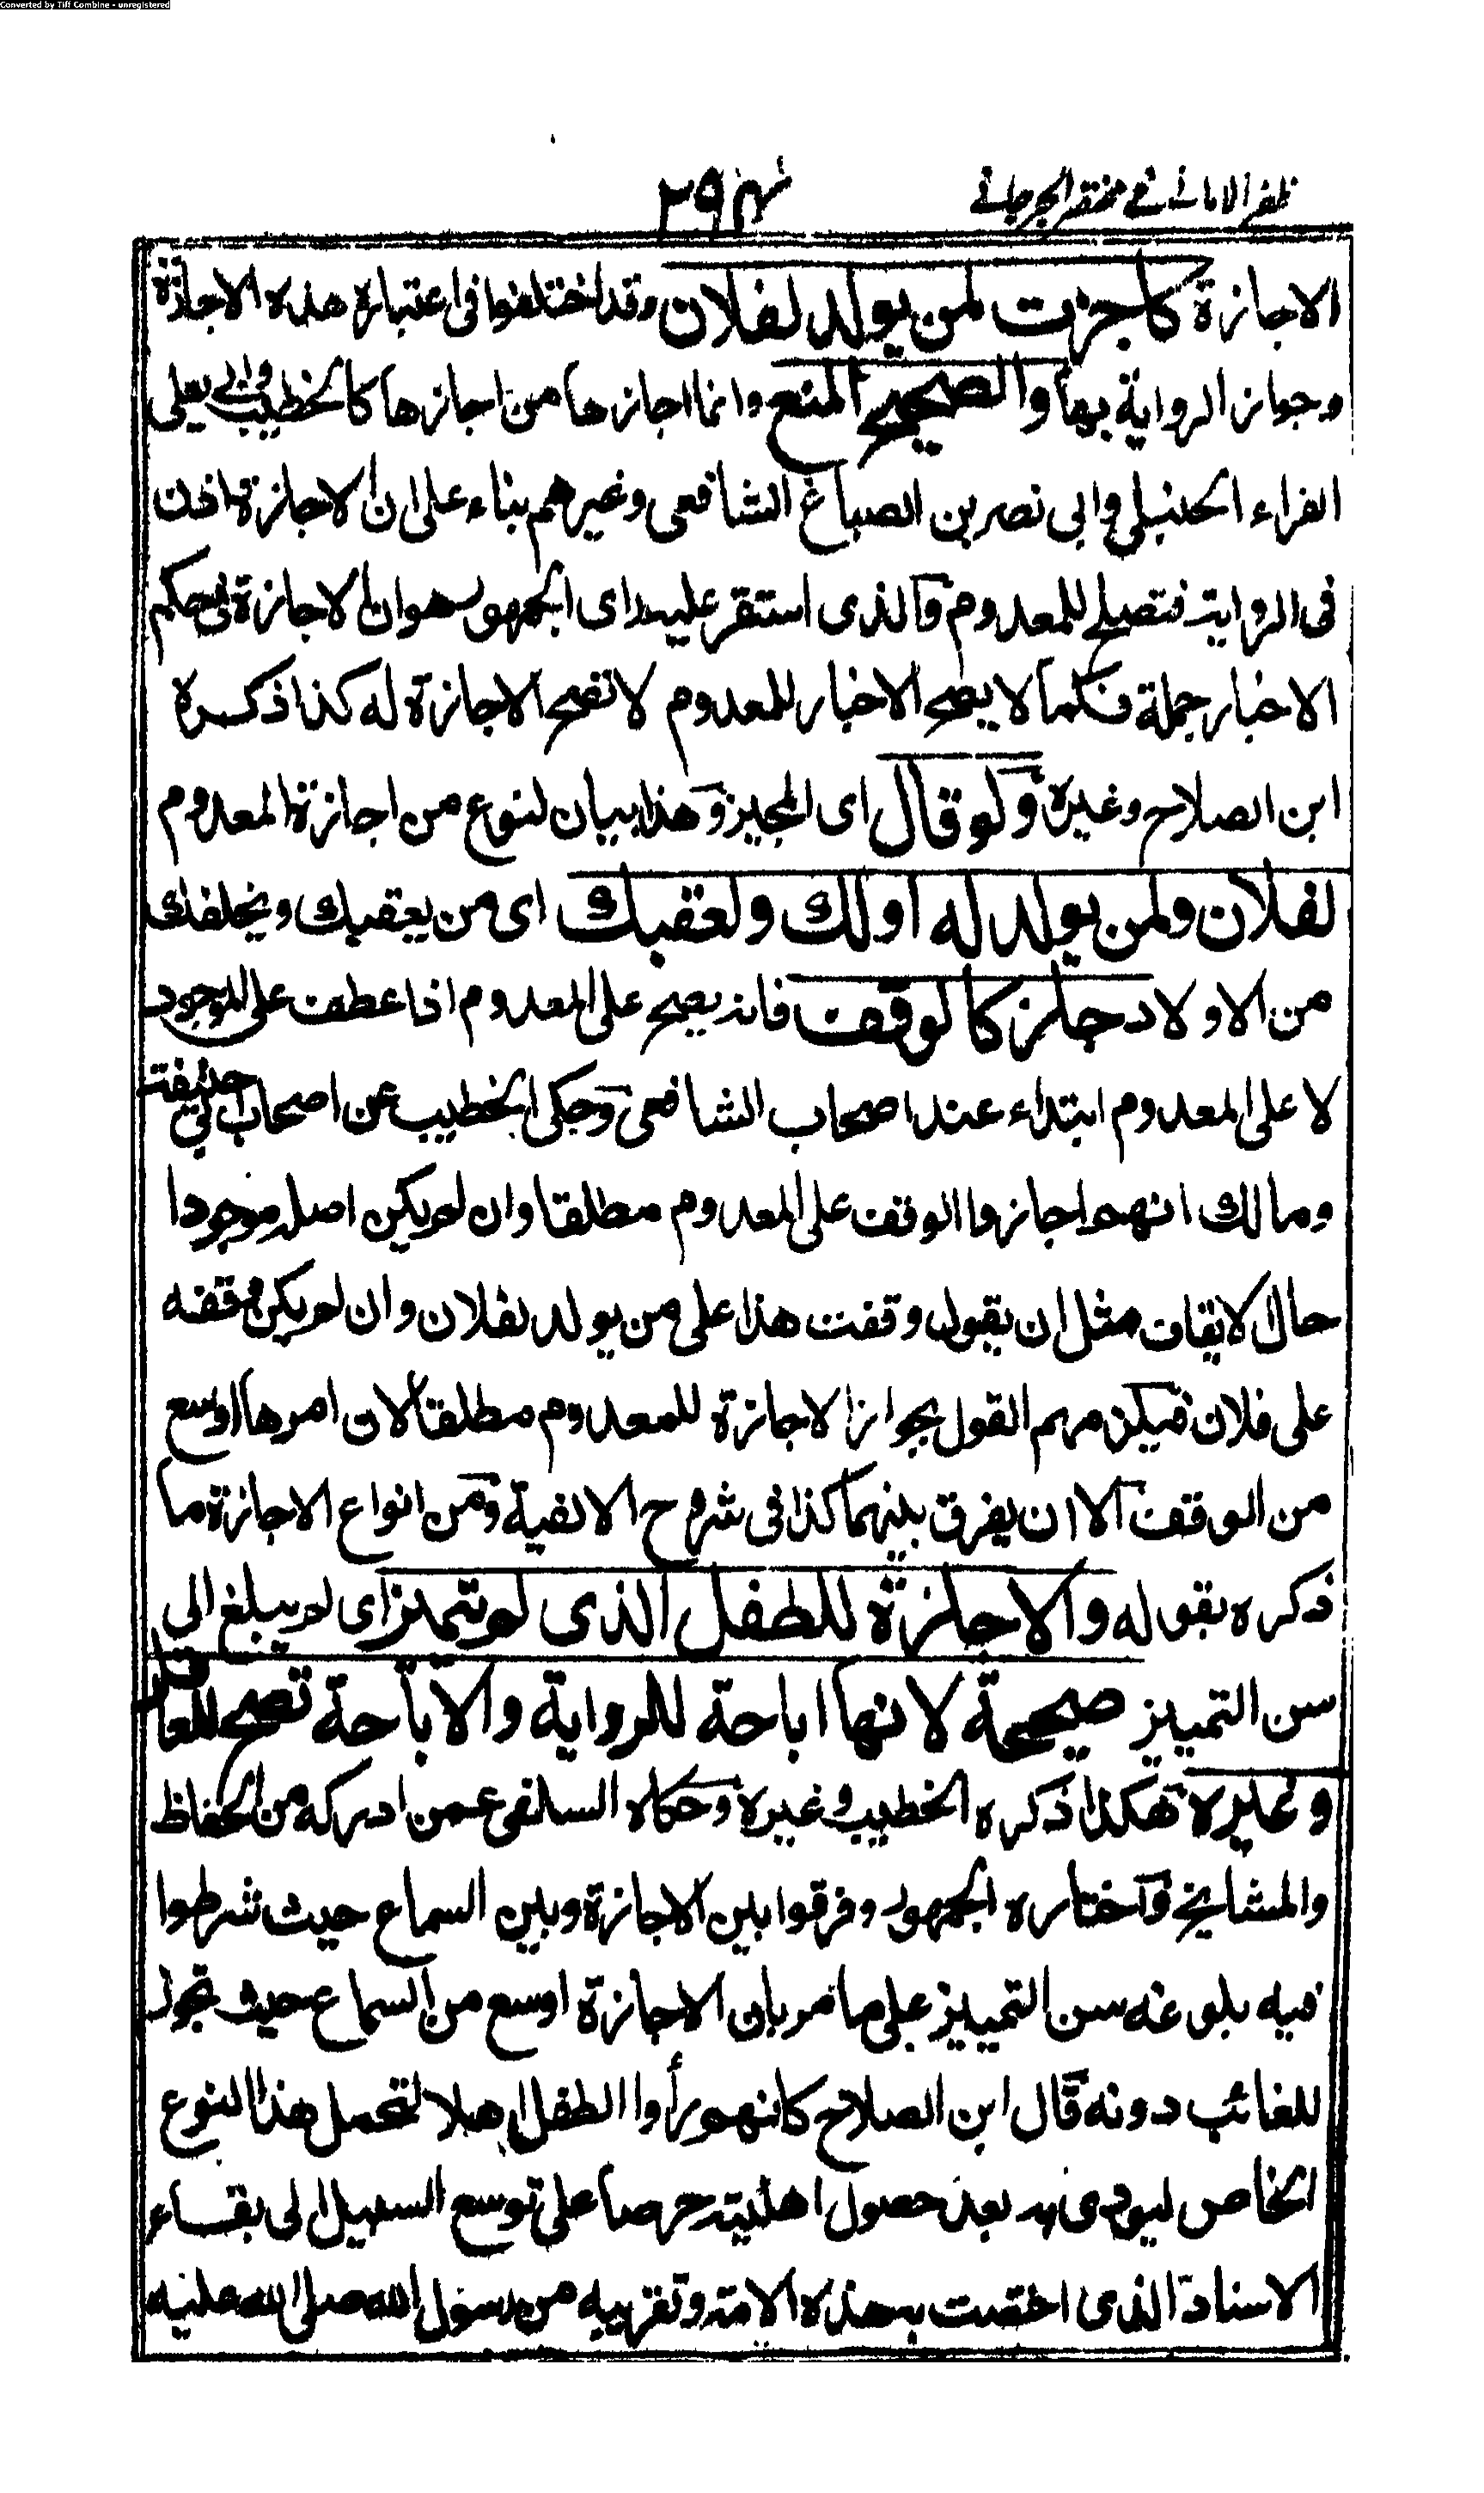 Converted by Tiff Combine - unregistered
ظفر الامانے فے مختصر الجرجانے
٢٩٣
الاجازة كاجزت لمن يولد لفلان وقد اختلفوا فى اعتبار هذه الاجازة
وجواز الرواية بها والصحيح المنع وانما اجازها من اجازها كالخطيب وابى يعلى
الفراء الحنبلى وابى نصر بن الصباغ الشافعى وغيرهم بناء على ان الاجازة اذن
فى الرواية فتصح للمعدوم والذى استقر عليه راى الجمهور هو ان الاجازة فى حكم
الاخبار جملة فكما لا يصح الاخبار للمعدوم لا تصح الاجازة له كذا ذكره
ابن الصلاح وغيره ولو قال اى المجيز وهذا بيان لنوع من اجازة المعدوم
لفلان ولمن يولد له او لك ولعقبك اى من يعقبك ويخلفك
من الاولاد جاز كالوقف فانه يصح على المعدوم اذا عطف على الموجود
لا على المعدوم ابتداء عند اصحاب الشافعى وحكى الخطيب عن اصحاب ابى حنيفة
ومالك انهم اجازوا الوقف على المعدوم مطلقا وان لم يكن اصله موجودا
حال الايقاف مثل ان يقول وقفت هذا على من يولد لفلان وان لم يكن وقفه
على فلان فيمكن منهم القول بجواز الاجازة للمعدوم مطلقا لان امرها اوسع
من الوقف الا ان يفرق بينهما كذا فى شروح الالفية ومن انواع الاجازة ما
ذكره بقوله والاجازة للطفل الذى لم يتميز اى لم يبلغ الى
سن التمييز صحيحة لانها اباحة للرواية والاباحة تصح للعاقل
وغيره هكذا ذكره الخطيب وغيره وحكاه السلفى عمن ادركه من الحفاظ
والمشايخ واختاره الجمهور وفرقوا بين الاجازة وبين السماع حيث شرطوا
فيه بلوغه سن التمييز على ما مر بان الاجازة اوسع من السماع حيث تجوز
للغائب دونه قال ابن الصلاح كانهم رأوا الطفل اهلا لتحمل هذا النوع
الخاص ليودى به بعد حصول اهليته حرصا على توسع السبيل الى بقاء
الاسناد الذى اختصت به هذه الامة وتقريبه من رسول الله صلى الله عليه